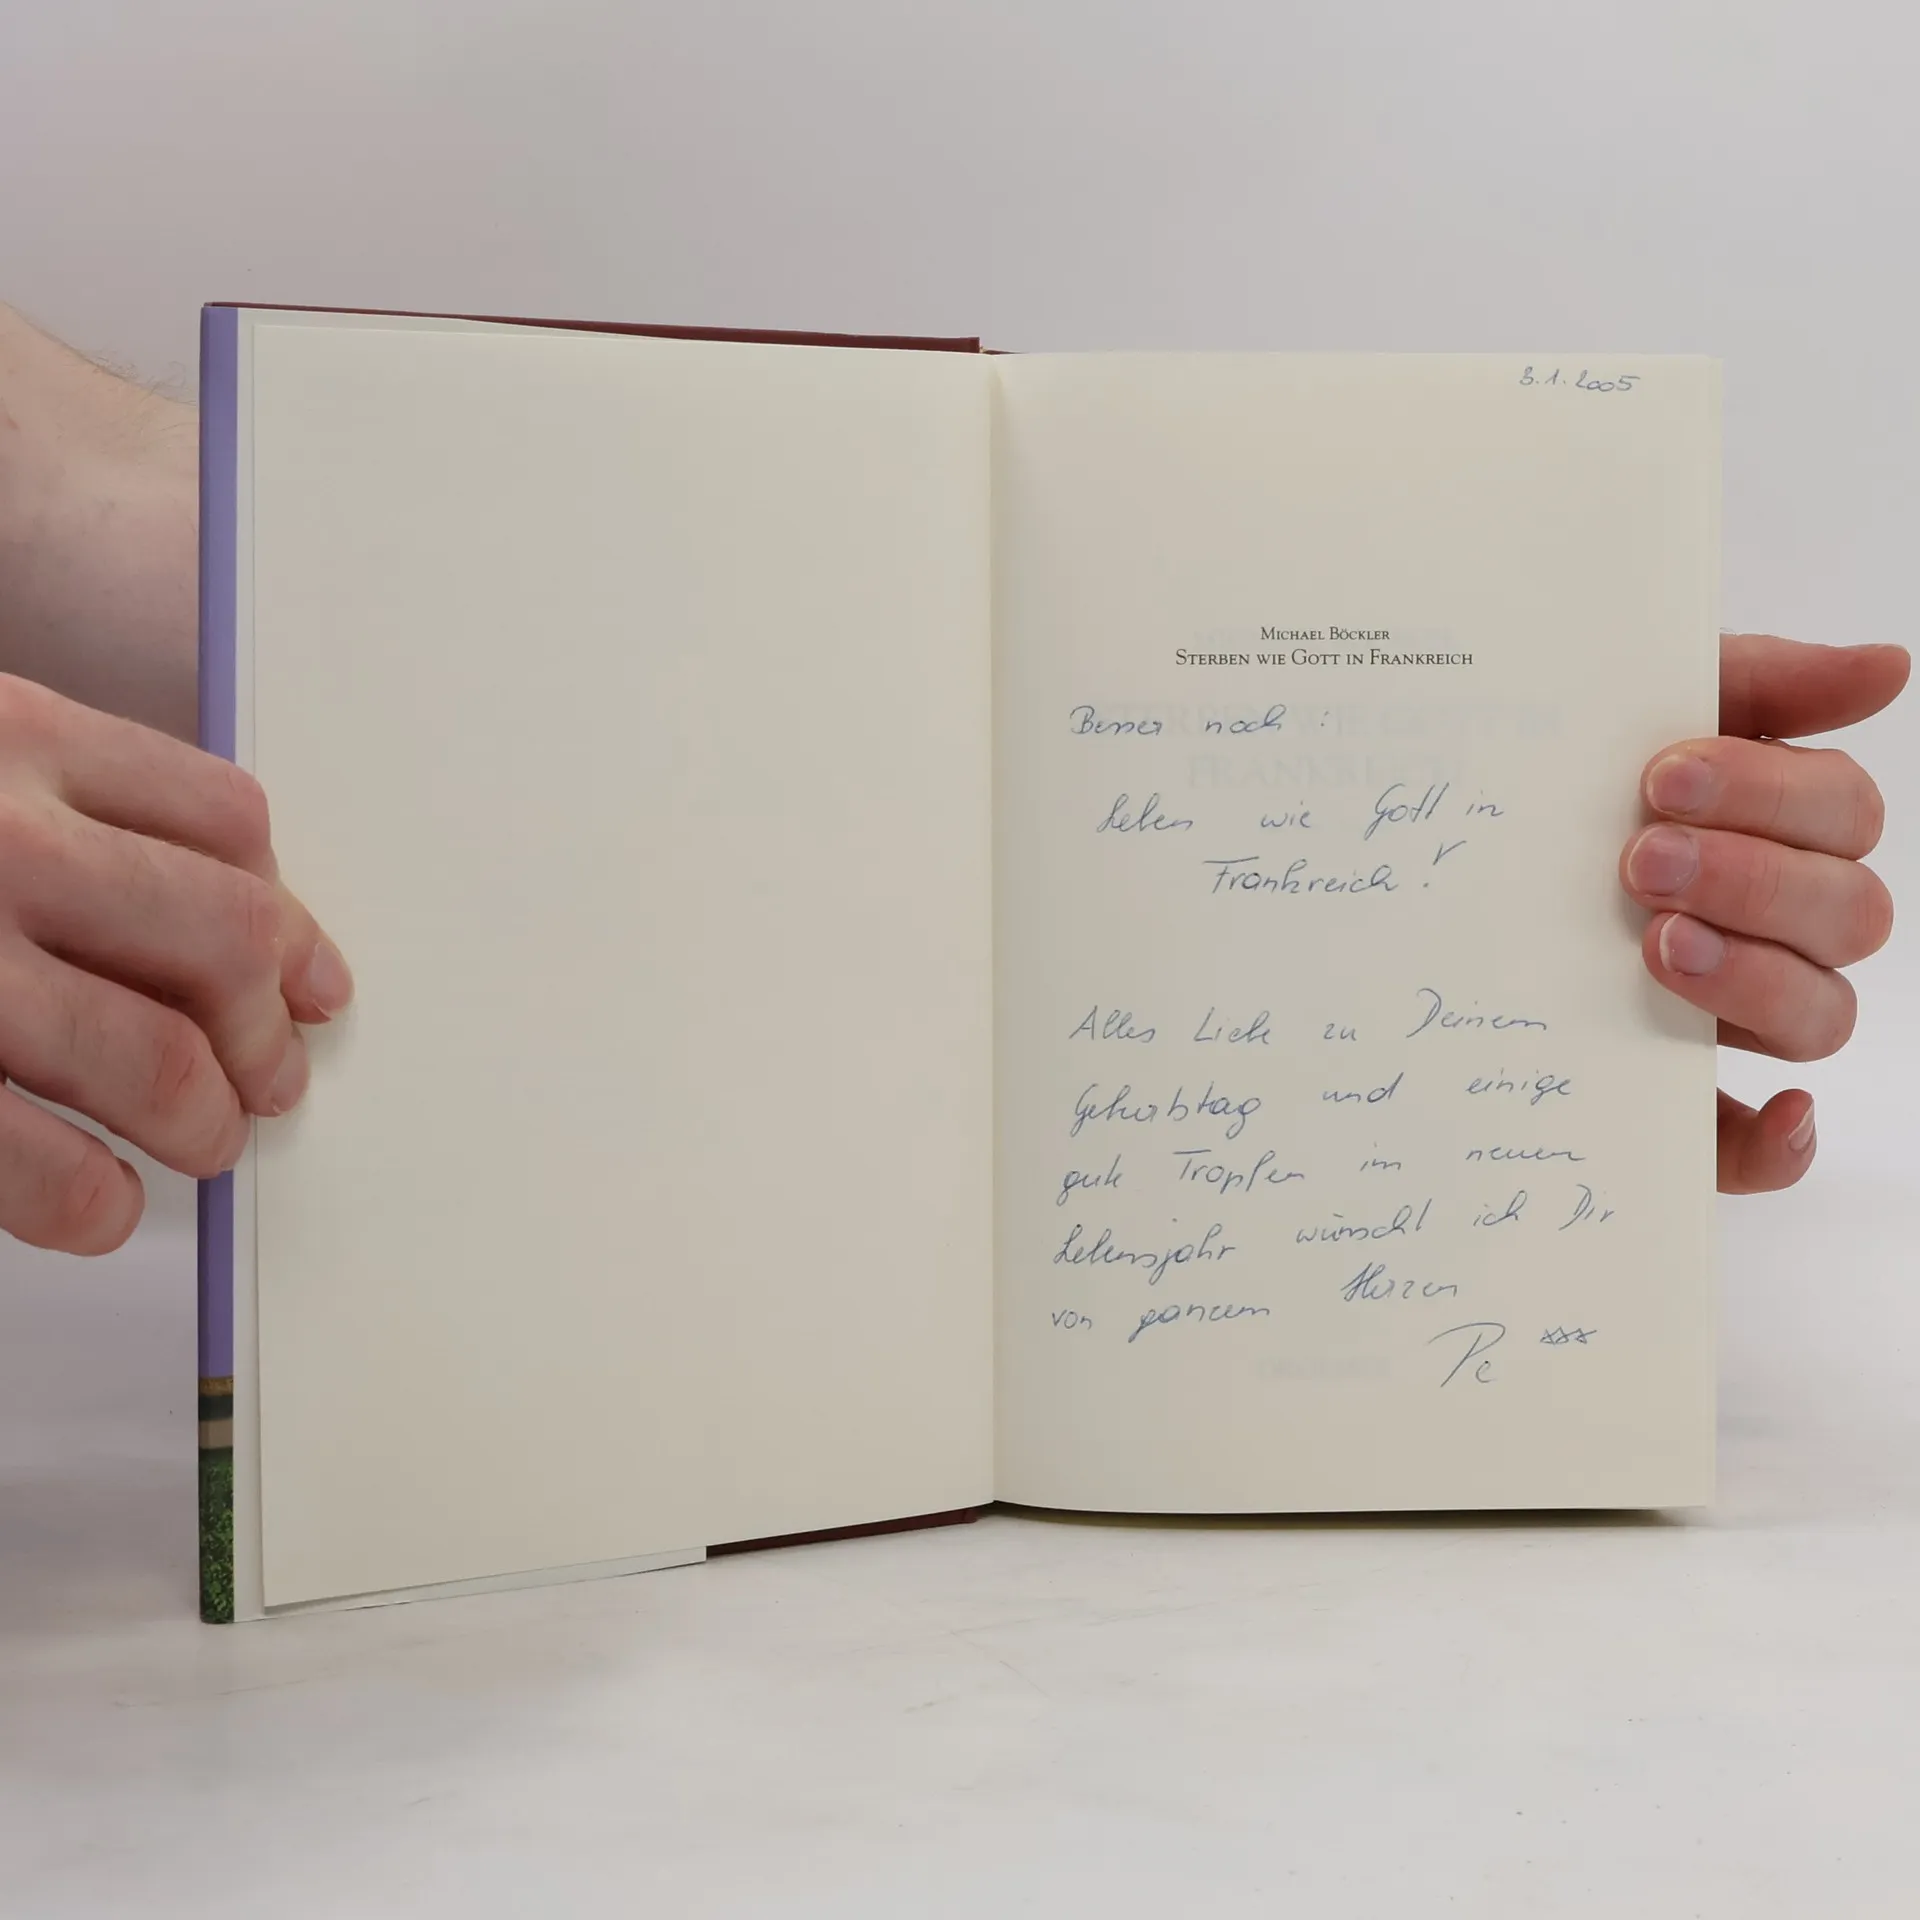 3.1.2005
MICHAEL BÖCKLER
STERBEN WIE GOTT IN FRANKREICH
Besser noch:
Leben wie Gott in
Frankreich!
Alles Liebe zu Deinem
Geburtstag und einige
gute Tropfen im neuen
Lebensjahr wünscht ich Dir
von ganzem Herzen
Pe ***